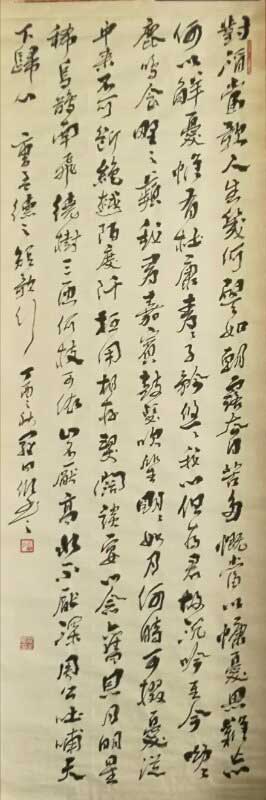 對酒當歌人生幾何譬如朝露去日苦多慨當以慷憂思難忘
何以解憂惟有杜康青々子衿悠々我心但為君故沉吟至今呦々
鹿鳴食野之蘋我有嘉賓鼓瑟吹笙明明如月何時可掇憂從
中來不可斷絕越陌度阡枉用相存契闊談宴心念舊恩月明星
稀烏鵲南飛繞樹三匝何枝可依山不厭高水不厭深周公吐哺天
下歸心 曹孟德之短歌行